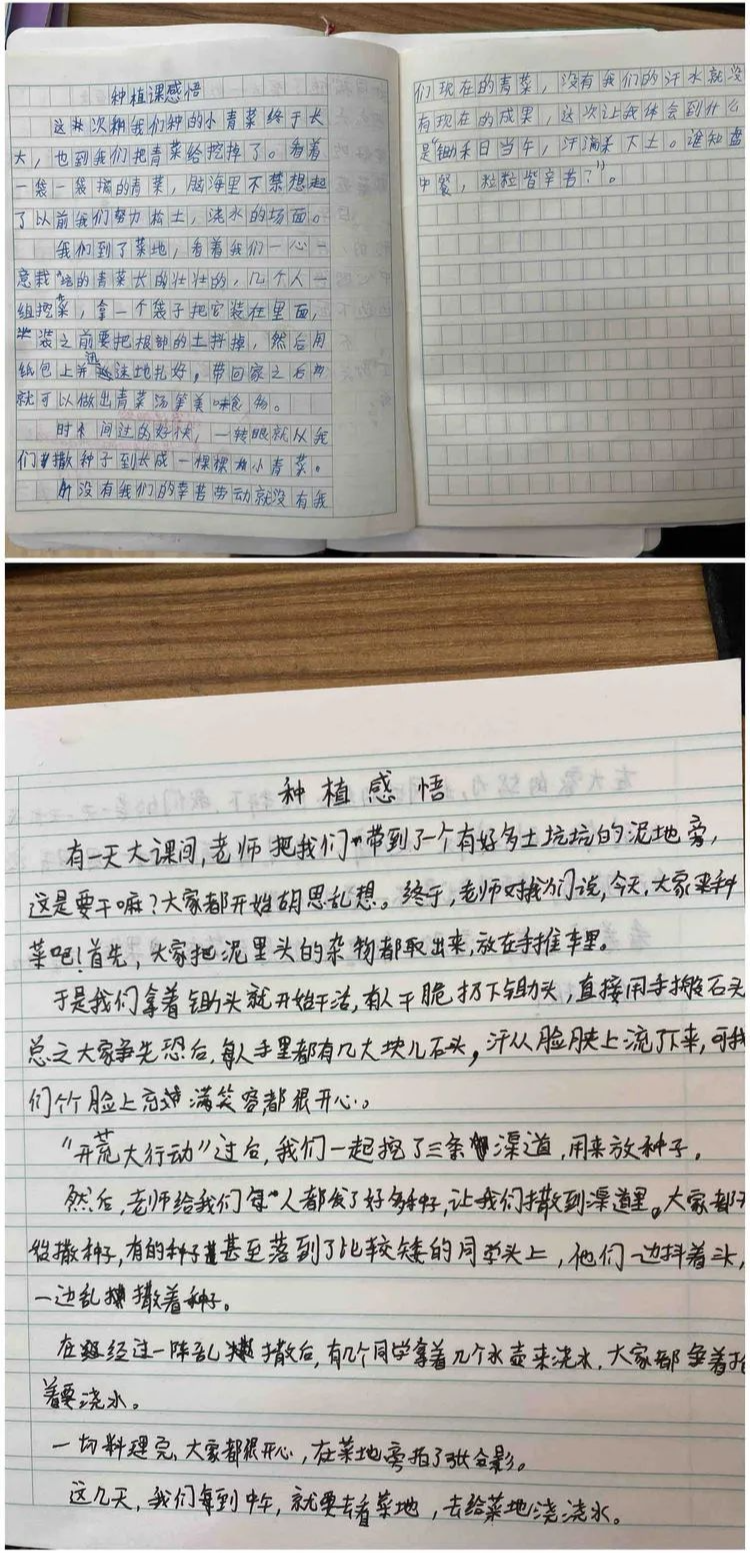 种植课感悟
这次期我们种的小青菜终于长
大，也到我们把青菜给挖掉了。看着
一袋一袋摘的青菜，脑海里不禁想起
了以前我们努力松土，浇水的场面。
我们到了菜地，看着我们一心一
意栽培的青菜长的壮壮的，几个人一
组挖菜，拿一个袋子把它装在里面，
装之前要把根部的土抖掉，然后用
纸包上并迅速地扎好，带回家之后
就可以做出青菜汤等美味食物。
时间过的好快，一转眼就从我
们撒种子到长成一棵棵小青菜。
没有我们的辛苦劳动就没有我
们现在的青菜，没有我们的汗水就没
有现在的成果，这次让我体会到什么
是“锄禾日当午，汗滴禾下土。谁知盘
中餐，粒粒皆辛苦？”。
种植感悟
有一天大课间，老师把我们带到了一个有好多土坑坑的泥地旁，
这是要干嘛？大家都开始胡思乱想。终于，老师对我们说，今天，大家来种
菜吧！首先，大家把泥里头的杂物都取出来，放在手推车里。
于是我们拿着锄头就开始干活，有人干脆扔下锄头，直接用手搬石头
总之大家争先恐后，每人手里都有几大块儿石头，汗从脸颊上流了下来，可我
们个个脸上充满笑容，都很开心。
“开荒大行动”过后，我们一起挖了三条渠道，用来放种子。
然后，老师给我们每人都发了好多种子，让我们撒到渠道里。大家都开
始撒种子，有的种子甚至落到了比较矮的同学头上，他们一边抖着头，
一边乱撒着种子。
在经过一阵乱撒后，有几个同学拿着几个水壶来浇水，大家都争着抢
着要浇水。
一切料理完，大家都很开心，在菜地旁拍了张合影。
这几天，我们每到中午，就要去看菜地，去给菜地浇浇水。